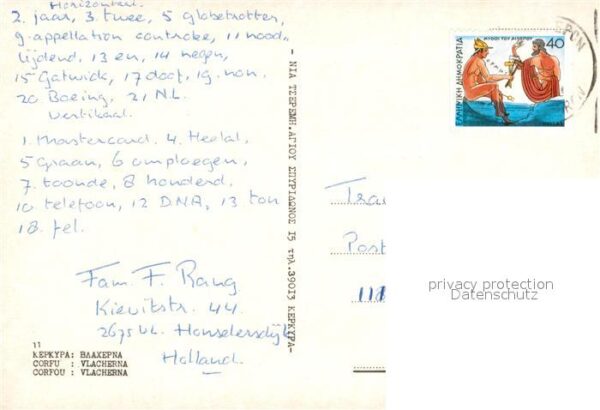 Horizontaal
2. jaar, 3. twee, 5 globetrotter,
9. appellation controlee, 11 nood,
lijdend, 13 en, 14 negen,
15 Gatwick, 17 doof, 19. non,
20 Boeing, 21 N.L.
Vertikaal
1. Mastercard, 4. Heelal,
5 Graan, 6 omploegen,
7. toonde, 8 honderd.
10. telefoon, 12 D.N.A, 13 ton
18. fel.
Fam. F. Rang
Kievitstr. 44
2675 VL Honselersdijk
Holland.
11
ΚΕΡΚΥΡΑ: ΒΛΑΧΕΡΝΑ
CORFU : VLACHERNA
CORFOU : VLACHERNA
- ΝΙΑ ΤΣΕΡΕΜΗ, ΑΓΙΟΥ ΣΠΥΡΙΔΩΝΟΣ 15 τηλ. 39013 ΚΕΡΚΥΡΑ-
ΜΥΘΟΙ ΤΟΥ ΑΙΣΩΠΟΥ
40
ΕΛΛΗΝΙΚΗ ΔΗΜΟΚΡΑΤΙΑ
Post
privacy protection
Datenschutz